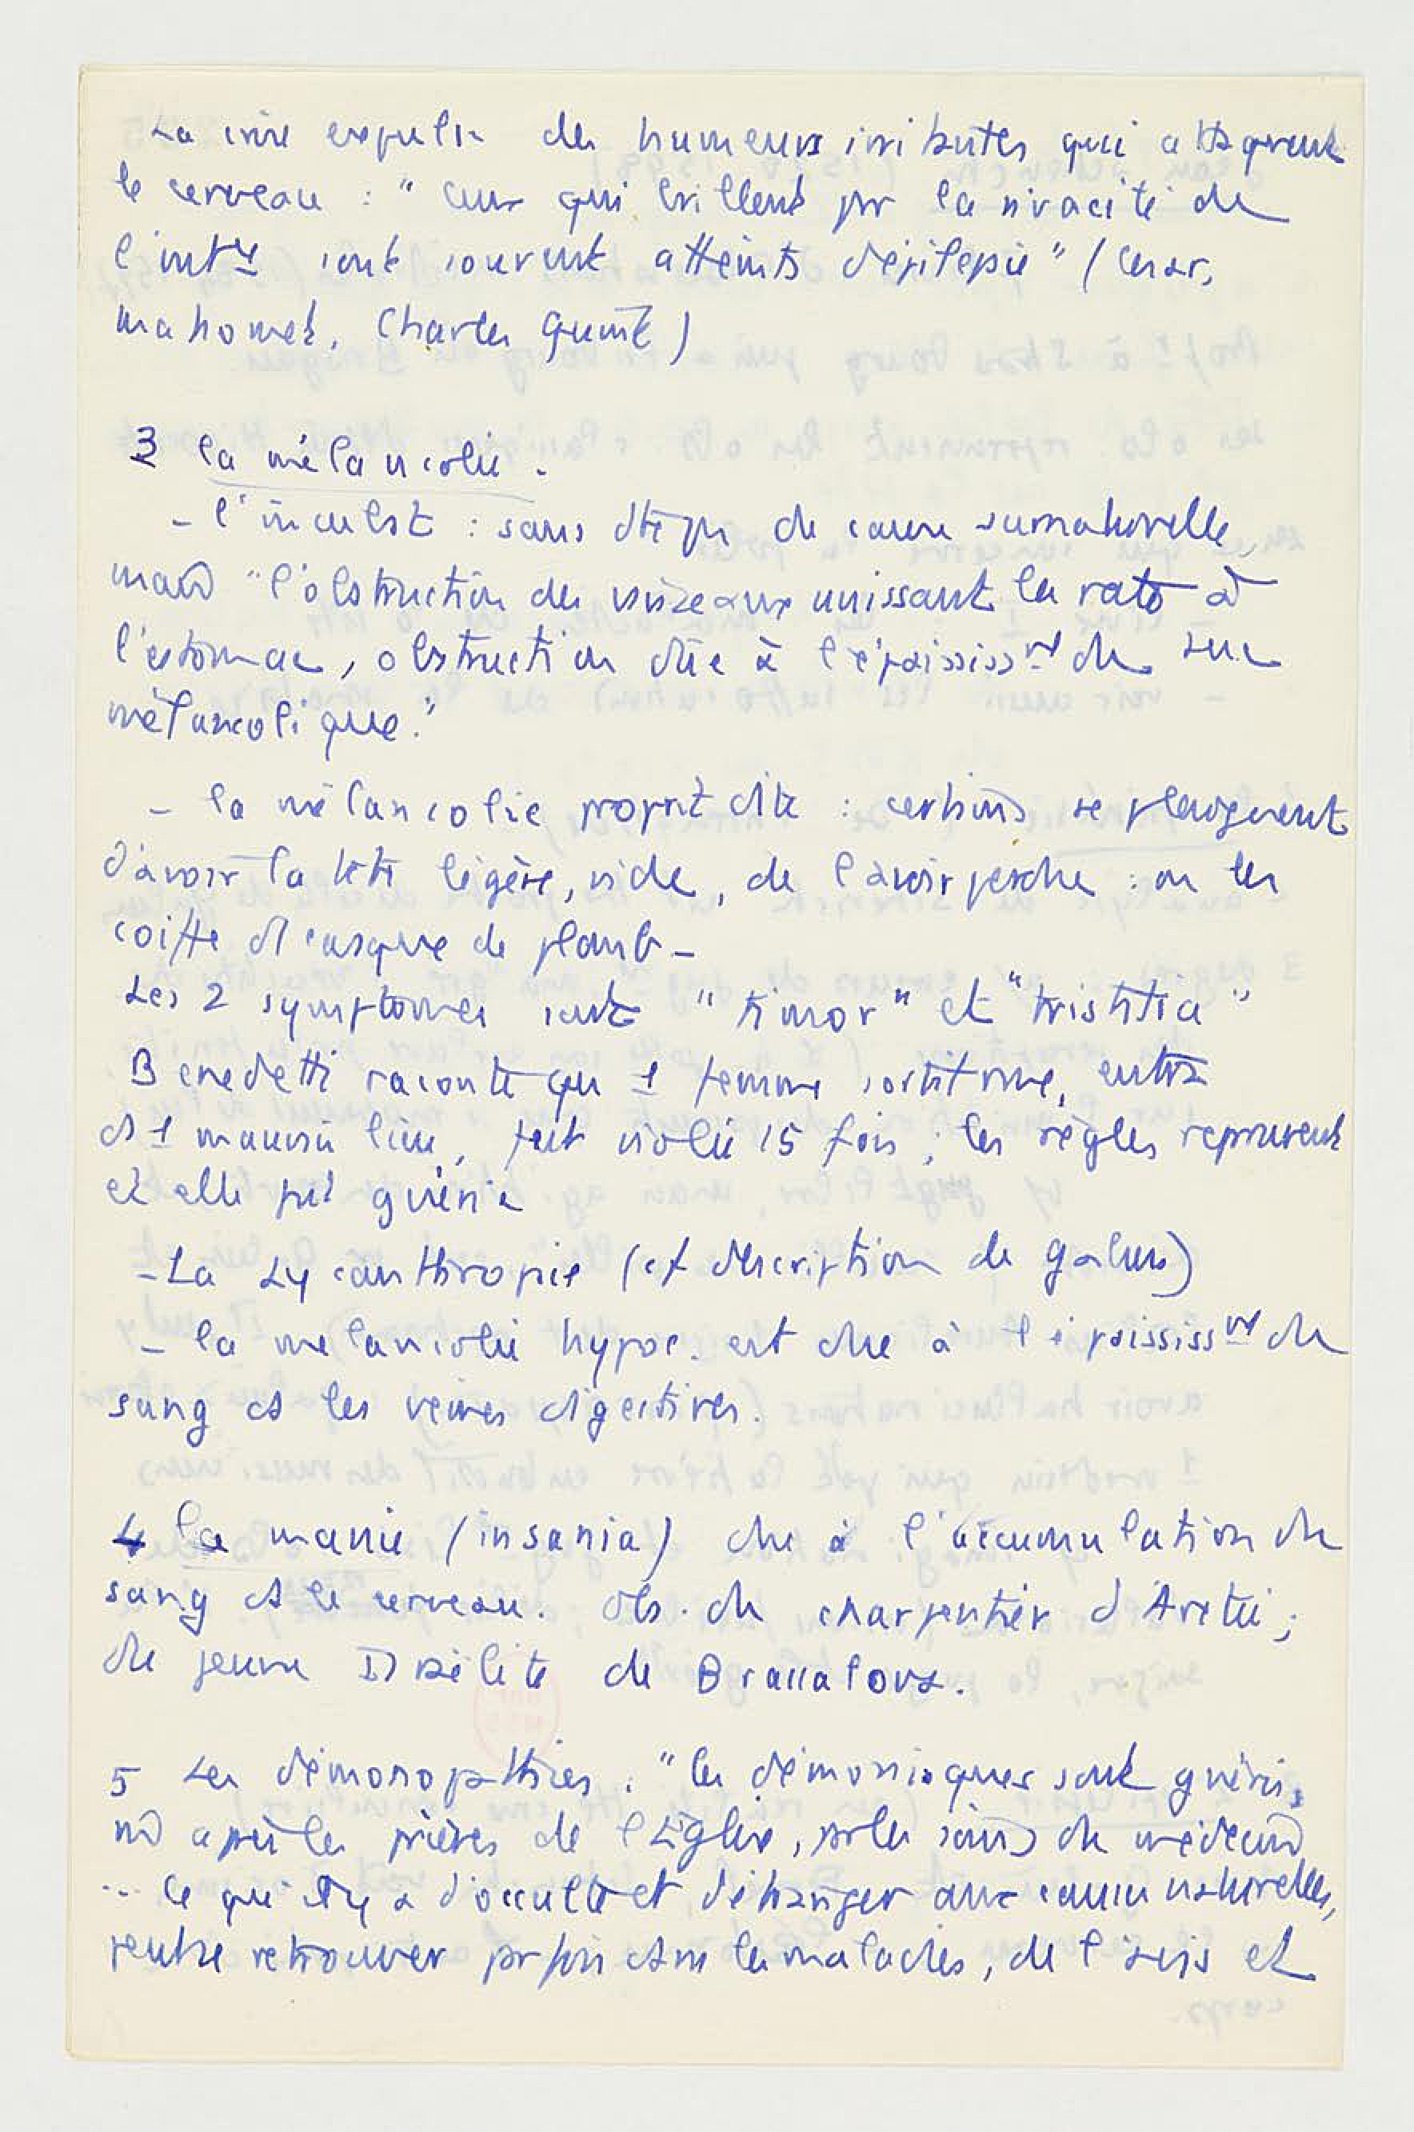 La crise expulse des humeurs irritantes qui attaquent
le cerveau : "Ceux qui brillent pr la vivacité de
l'int sont souvent atteints d'épilepsie" (César,
Mahomet, Charles Quint)
3 la mélancolie.
- l' : sans dte pas de cause surnaturelle,
mais "l'obstruction des vaisseaux unissant la rate à
l'estomac, obstruction due à l'épaississt du suc
mélancolique."
- la mélancolie propt dite : certains se plaignent
d'avoir la tête légère, vide, de l'avoir perdue : on les
coiffe d'1 casque de plomb -
Les 2 symptomes sont "timor" et "tristitia"
Benedetti raconte qu 1 femme , entra
ds 1 mauvais lieu, fut violée 15 fois ; les règles reprirent
et elle fut guérie
- La Lycanthropie (cf description de Galien)
- la mélancolie hypoc. est due à l'épaississt du
sang ds les veines digestives.
4 la manie (insania) due à l'accumulation du
sang ds le cerveau. Obs. du charpentier d'Arétée ;
du jeune Israélite de Brassavola.
5 Les démonopathies : "les démoniaques sont guéris,
non après les prières de l'Eglise, par les soins du médecin
... Ce qu'il y a d'occulte et d'étranger aux causes naturelles,
peut se retrouver parfois dans les maladies, de l'avis et